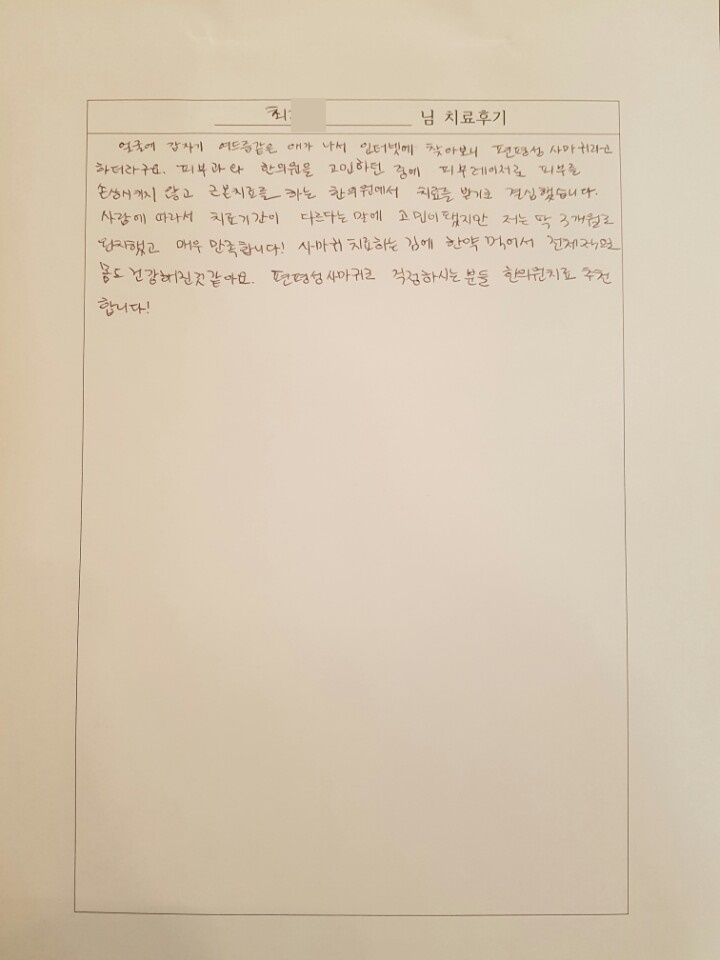 최 님 치료후기
얼굴에 갑자기 여드름같은 애가 나서 인터넷에 찾아보니 편평성 사마귀라고
하더라구요. 피부과와 한의원을 고민하던 중에 피부레이저로 피부를
손상시키지 않고 근본치료를 하는 한의원에서 치료를 받기로 결심했습니다.
사람에 따라서 치료기간이 다르다는 말에 고민이 됐지만 저는 딱 3개월로
완치했고 매우 만족합니다! 사마귀 치료하는 김에 한약 먹어서 전체적으로
몸도 건강해진것같아요. 편평성사마귀로 걱정하시는 분들 한의원치료 추천
합니다!